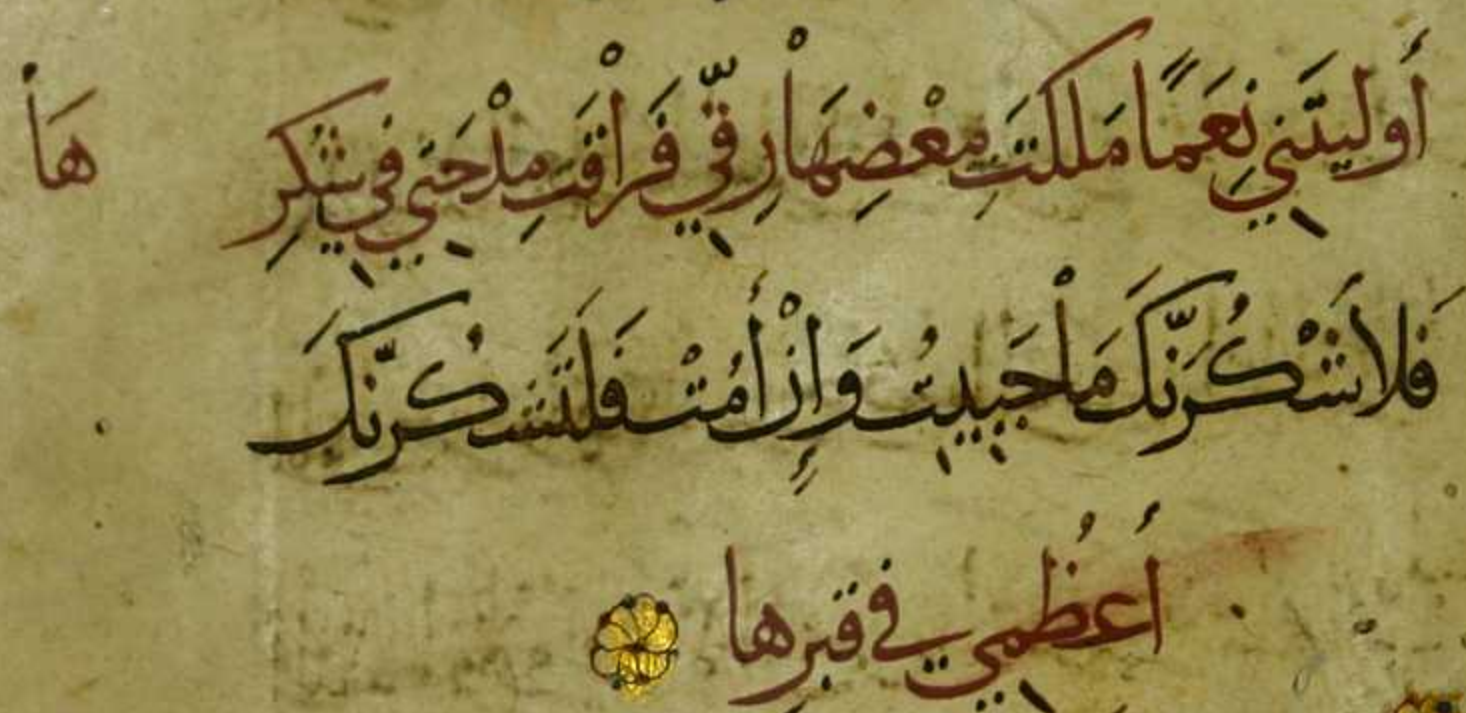 أَوليتَني نِعَمًا مَلكتَ بِبَعْضِهَا رِقّي فَرَاقَتِ مِدْحَتي في شُكرِ هَا
فَلأَشْكُرَنَّكَ مَا حَييتُ وَإِنْ أَمُتْ فَلَتَشكُرَنَّكَ
أَعْظُمي في قبرِها